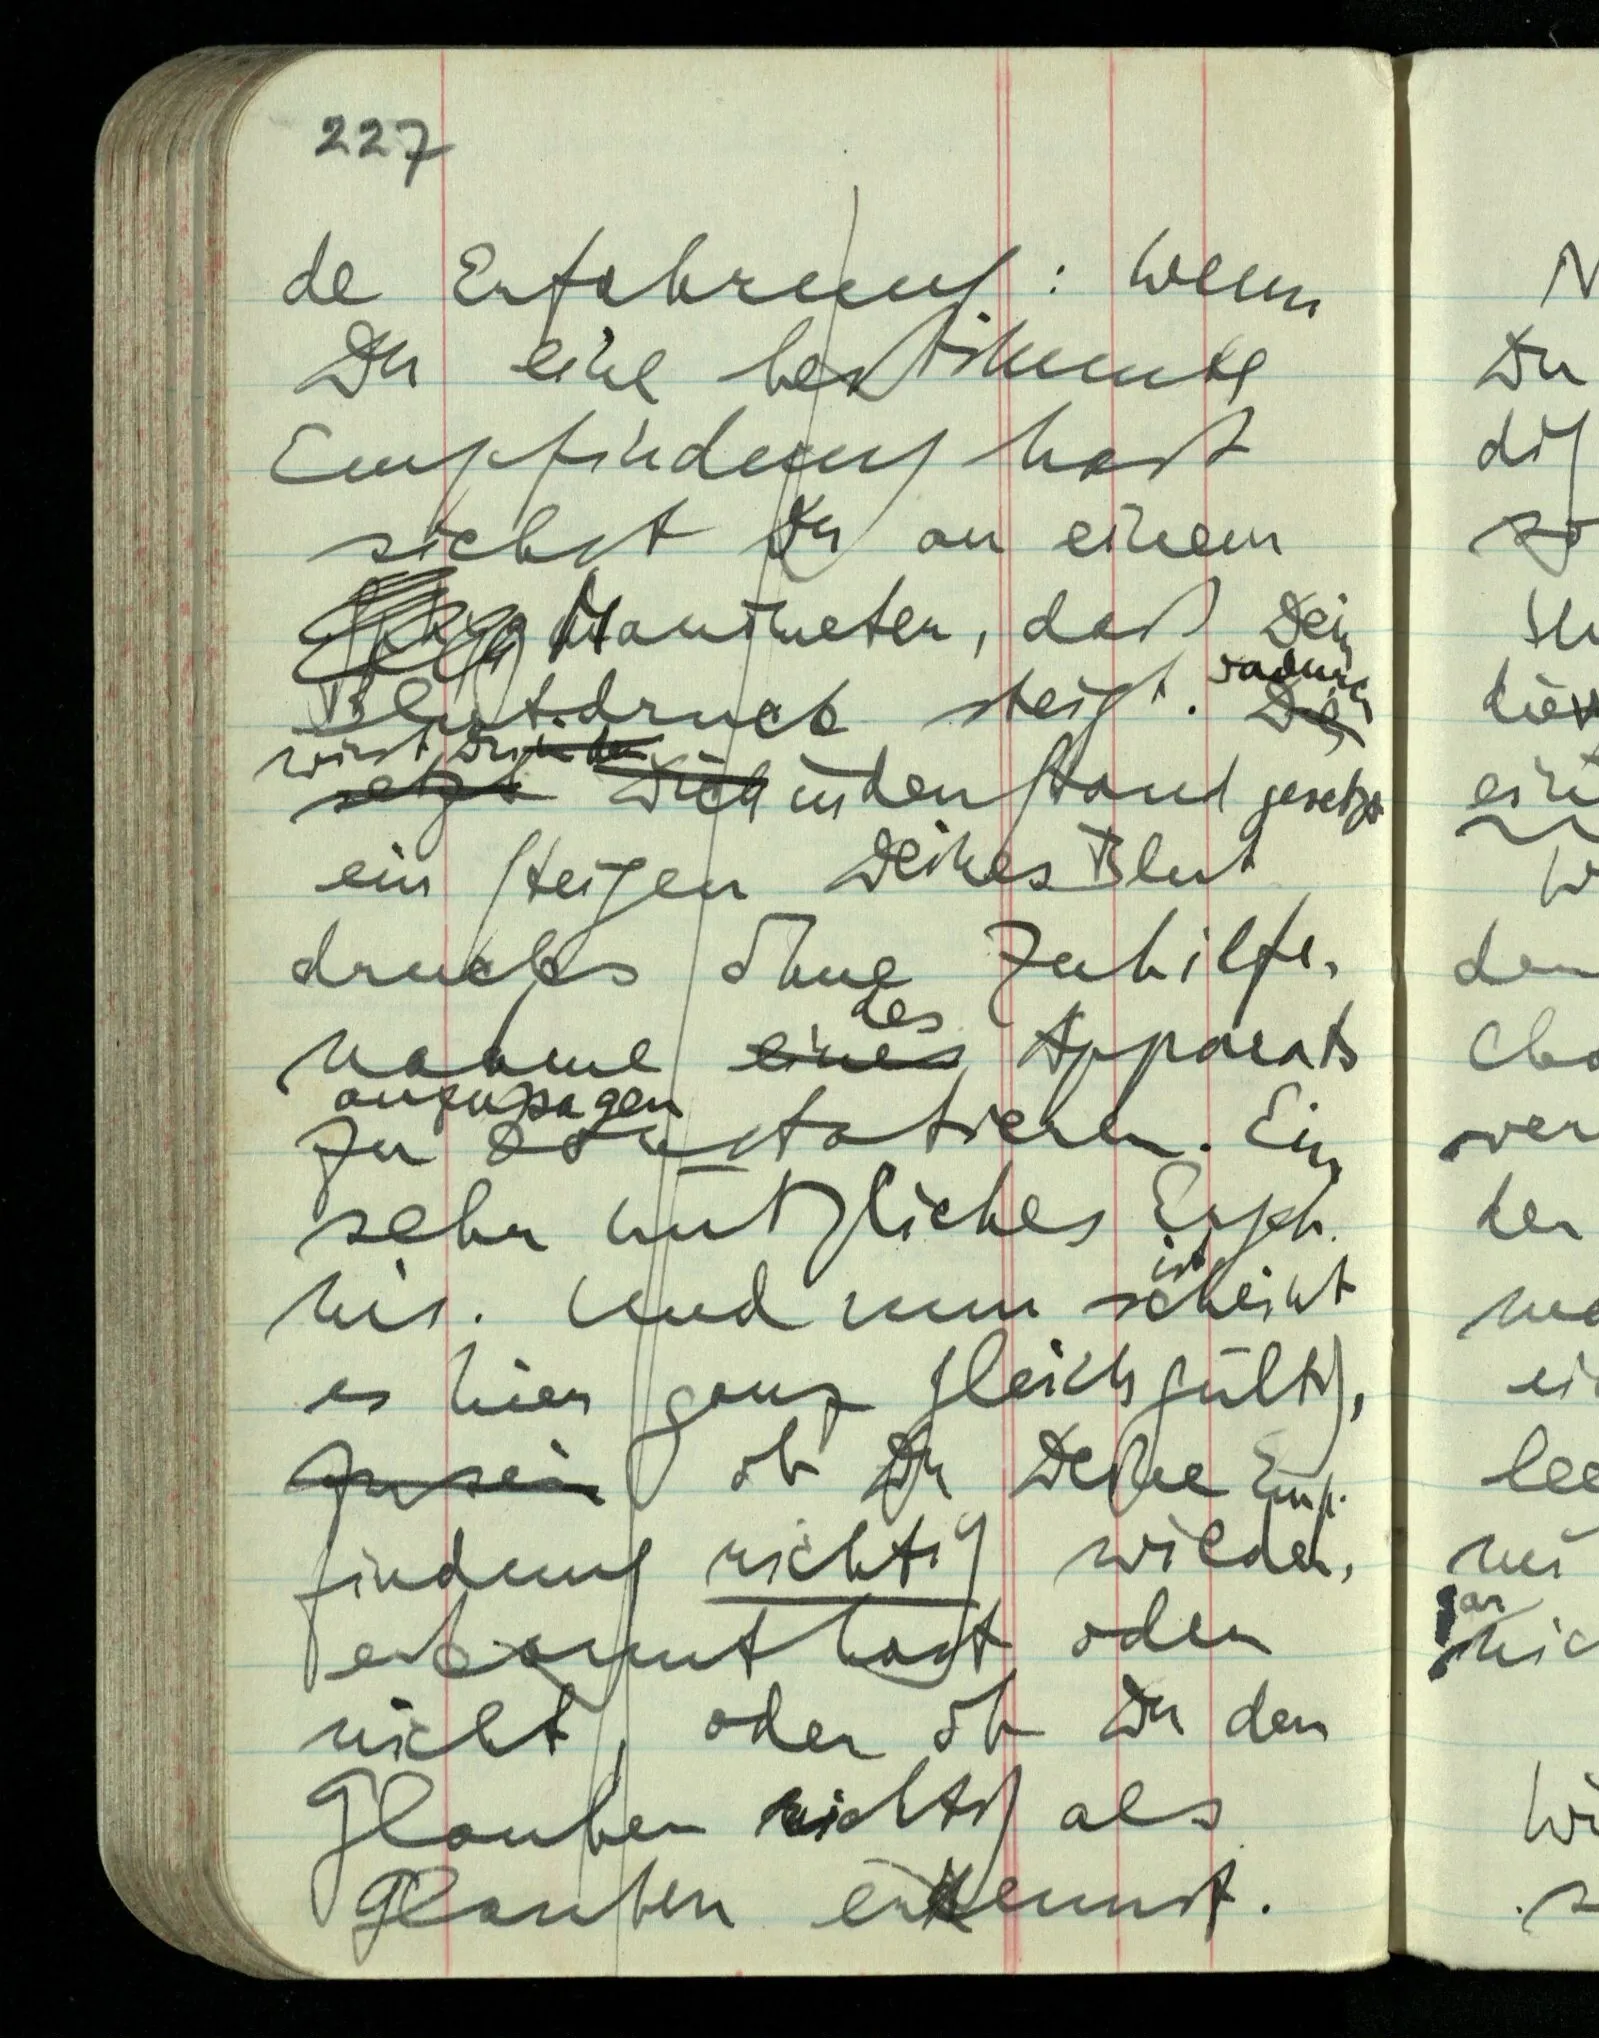 227
de Erfahrung: wenn
Du eine bestimmte
Empfindung hast
siehst Du an einem
Manometer, daß Dein
Blutdruck steigt. dadurch De
wirst Du in den
setzt Dich in den Stand gesetzt
ein Steigen Deines Blut
drucks ohne Zuhilfe-
des
nahme eines Apparats
anzusagen
zu constatieren. Ein
sehr nützliches Ergeb-
ist
nis. Und nun scheint
es hier ganz gleichgültig,
zu sein ob Du Deine Emp-
findung richtig wieder-
erkannt hast oder
nicht, oder ob Du den
Glauben richtig als
Glauben erkennst.
N
Du
dig
so
eine
den
der
gar